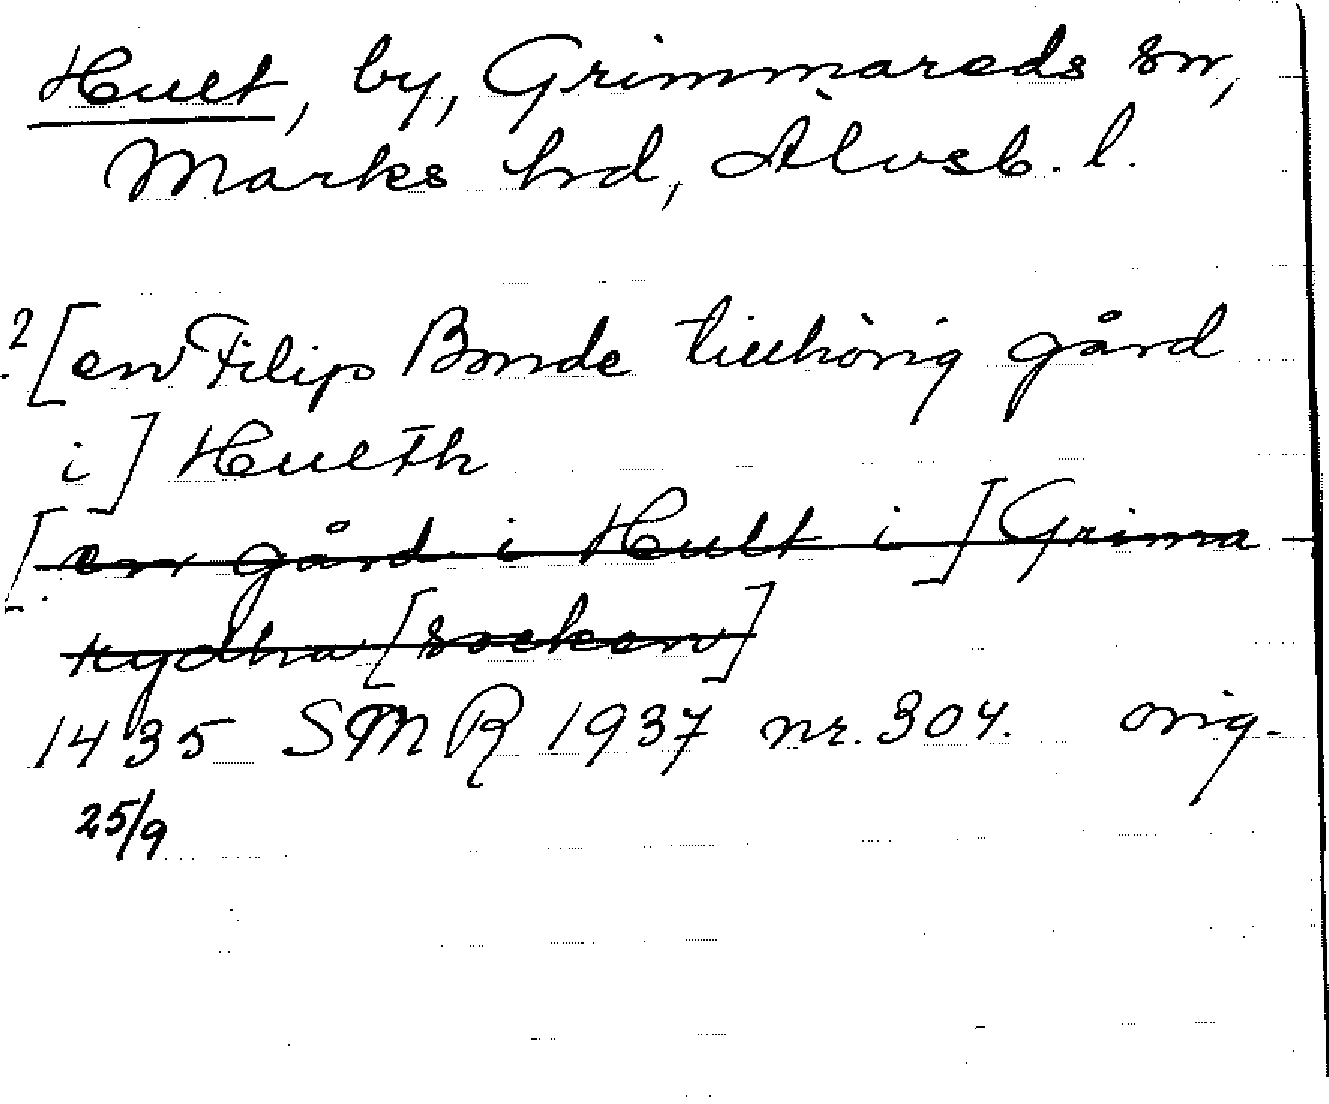 Hult, by, Grimmareds sn,
Marks hrd, Älvsb. l.
2 [en Filip Bonde tillhörig gård
i] Hulth
[en gård i Hult i] Grima
rydha [socken]
1435 SMR 1937 nr. 304. orig.
25/9